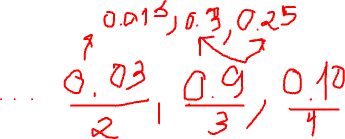 0.015, 0.3, 0.25
... 0.03/2, 0.9/3, 0.10/4